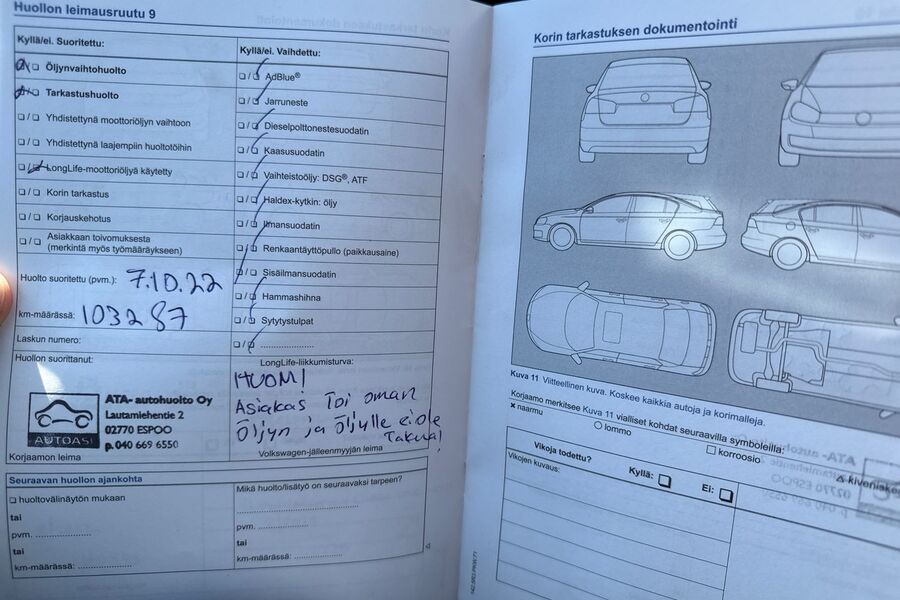 Huollon leimausruutu 9
Kyllä/ei. Suoritettu:
☐/☐ Öljynvaihtohuolto
☐/☐ Tarkastushuolto
☐/☐ Yhdistettynä moottoriöljyn vaihtoon
☐/☐ Yhdistettynä laajempiin huoltotöihin
☐/☐ LongLife-moottoriöljyä käytetty
☐/☐ Korin tarkastus
☐/☐ Korjauskehotus
☐/☐ Asiakkaan toivomuksesta
(merkintä myös työmääräykseen)
Huolto suoritettu (pvm.): 7.10.22
km-määrässä: 103287
Laskun numero:
Huollon suorittanut:
AUTOASI
ATA- autohuolto Oy
Lautamiehentie 2
02770 ESPOO
p.040 669 6550
Korjaamon leima
Kyllä/ei. Vaihdettu:
☐/☐ AdBlue®
☐/☐ Jarruneste
☐/☐ Dieselpolttonestesuodatin
☐/☐ Kaasusuodatin
☐/☐ Vaihteistoöljy: DSG®, ATF
☐/☐ Haldex-kytkin: öljy
☐/☐ Ilmansuodatin
☐/☐ Renkaantäyttöpullo (paikkausaine)
☐/☐ Sisäilmansuodatin
☐/☐ Hammashihna
☐/☐ Sytytystulpat
☐/☐ ....................
LongLife-liikkumisturva:
HUOM!
Asiakas Toi oman
Öljyn ja Öljylle ei ole
Takuuta!
Volkswagen-jälleenmyyjän leima
Seuraavan huollon ajankohta
☐ huoltovälinäytön mukaan
tai
pvm. ....................
tai
km-määrässä: ....................
Mikä huolto/lisätyö on seuraavaksi tarpeen?
..............................
pvm. ....................
tai
km-määrässä: ....................
Korin tarkastuksen dokumentointi
Kuva 11 Viitteellinen kuva. Koskee kaikkia autoja ja korimalleja.
Korjaamo merkitsee Kuva 11 vialliset kohdat seuraavilla symboleilla:
× naarmu
○ lommo
☐ korroosio
△ kiveniskem
Vikoja todettu?
Kyllä: ☐
Ei: ☐
Vikojen kuvaus: